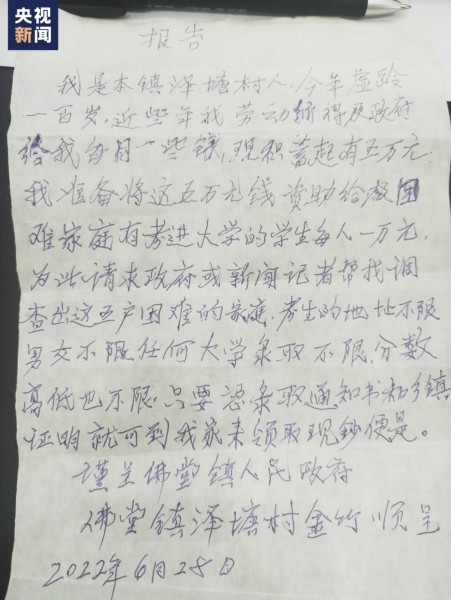 央视
新闻
报告
我是本镇泽塘村人,今年虚龄
一百岁.近些年我劳动所得及政府
给我每月一些钱,现积蓄起有五万元.
我准备将这五万元钱资助给困
难家庭有考进大学的学生每人一万元.
为此请求政府或新闻记者帮找调
查出这五户困难的家庭,考生的地址不限
男女不限任何大学录取不限,分数
高低也不限.只要凭录取通知书和乡镇
证明就可到我家来领取现钞便是。
谨呈佛堂镇人民政府
佛堂镇泽塘村金竹顺呈
2022年6月28日